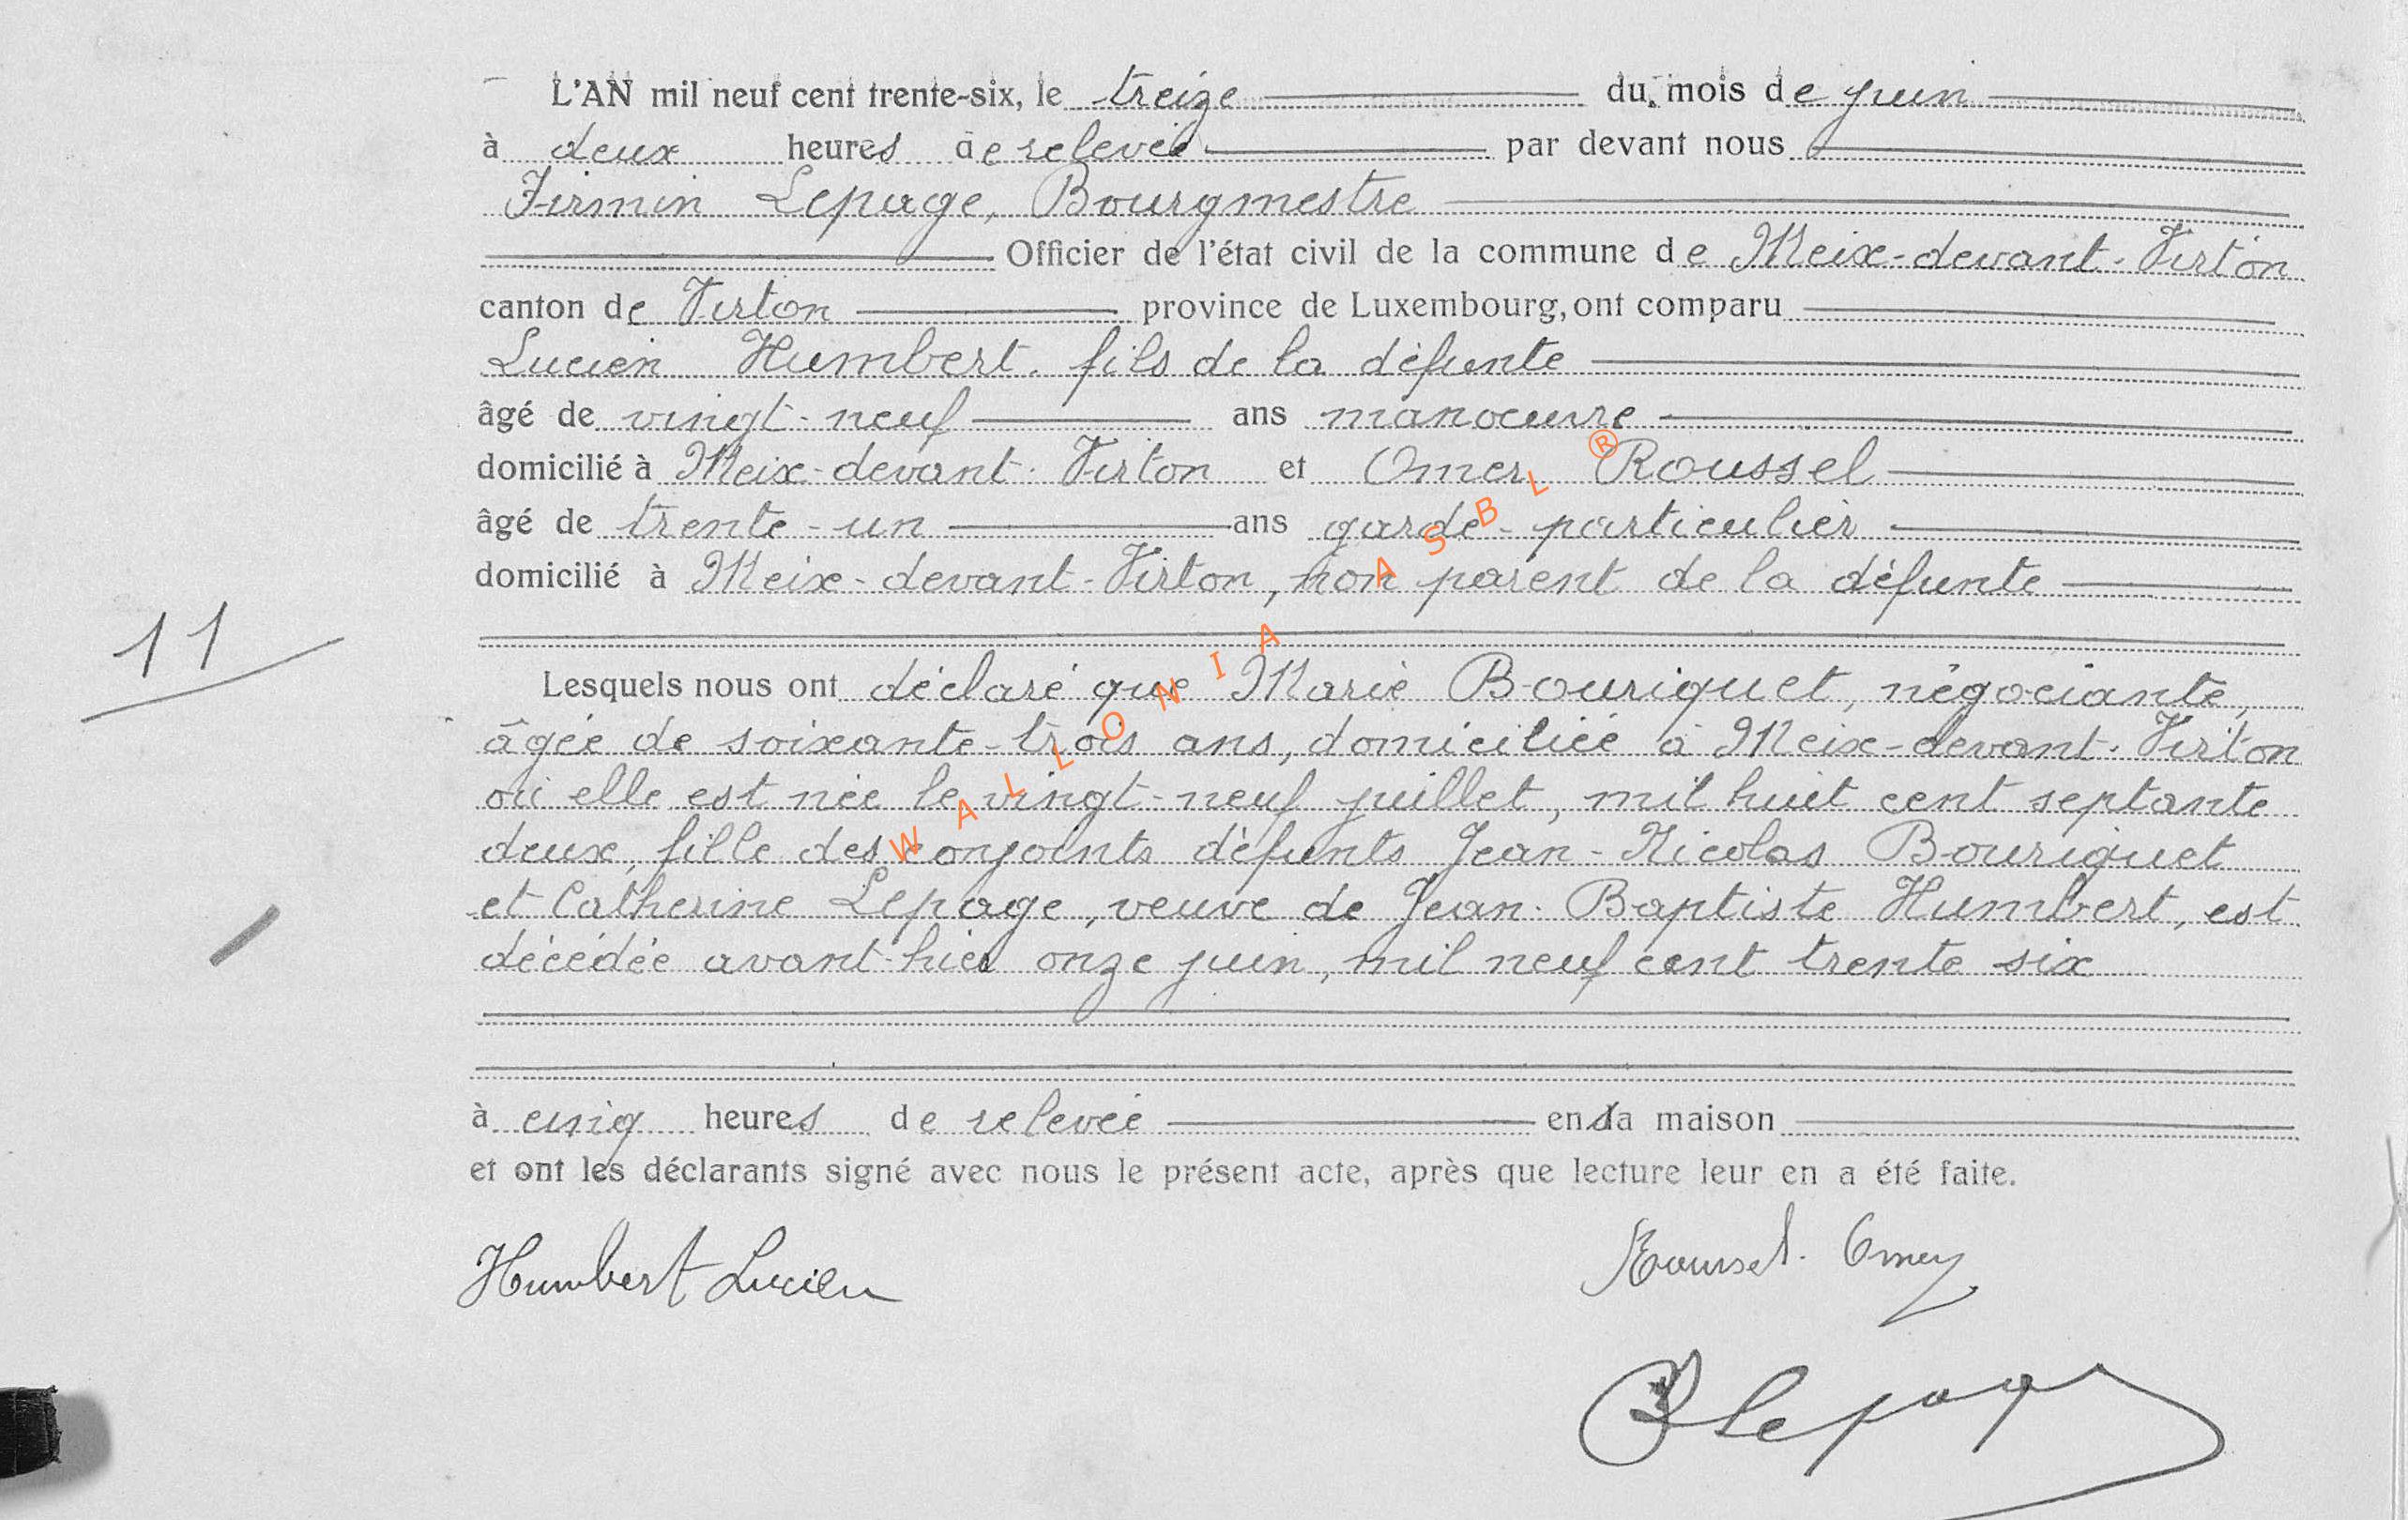 L'AN mil neuf cent trente-six, le treize du mois de juin
à deux heures de relevée par devant nous
Firmin Lepage, Bourgmestre
Officier de l'état civil de la commune de Meix-devant-Virton
canton de Virton province de Luxembourg, ont comparu
Lucien Humbert, fils de la défunte
âgé de vingt-neuf ans manoeuvre
domicilié à Meix-devant-Virton et Omer Roussel
âgé de trente-un ans garde-particulier
domicilié à Meix-devant-Virton, non parent de la défunte
11
Lesquels nous ont déclaré que Marie Bouriquet, négociante,
âgée de soixante-trois ans, domiciliée à Meix-devant-Virton
où elle est née le vingt-neuf juillet, mil huit cent septante
deux, fille des conjoints défunts Jean-Nicolas Bouriquet
et Catherine Lepage, veuve de Jean-Baptiste Humbert, est
décédée avant-hier onze juin, mil neuf cent trente six
à cinq heures de relevée en sa maison
et ont les déclarants signé avec nous le présent acte, après que lecture leur en a été faite.
Humbert Lucien
Roussel Omer
Lepage
WALLONIA ASBL ®